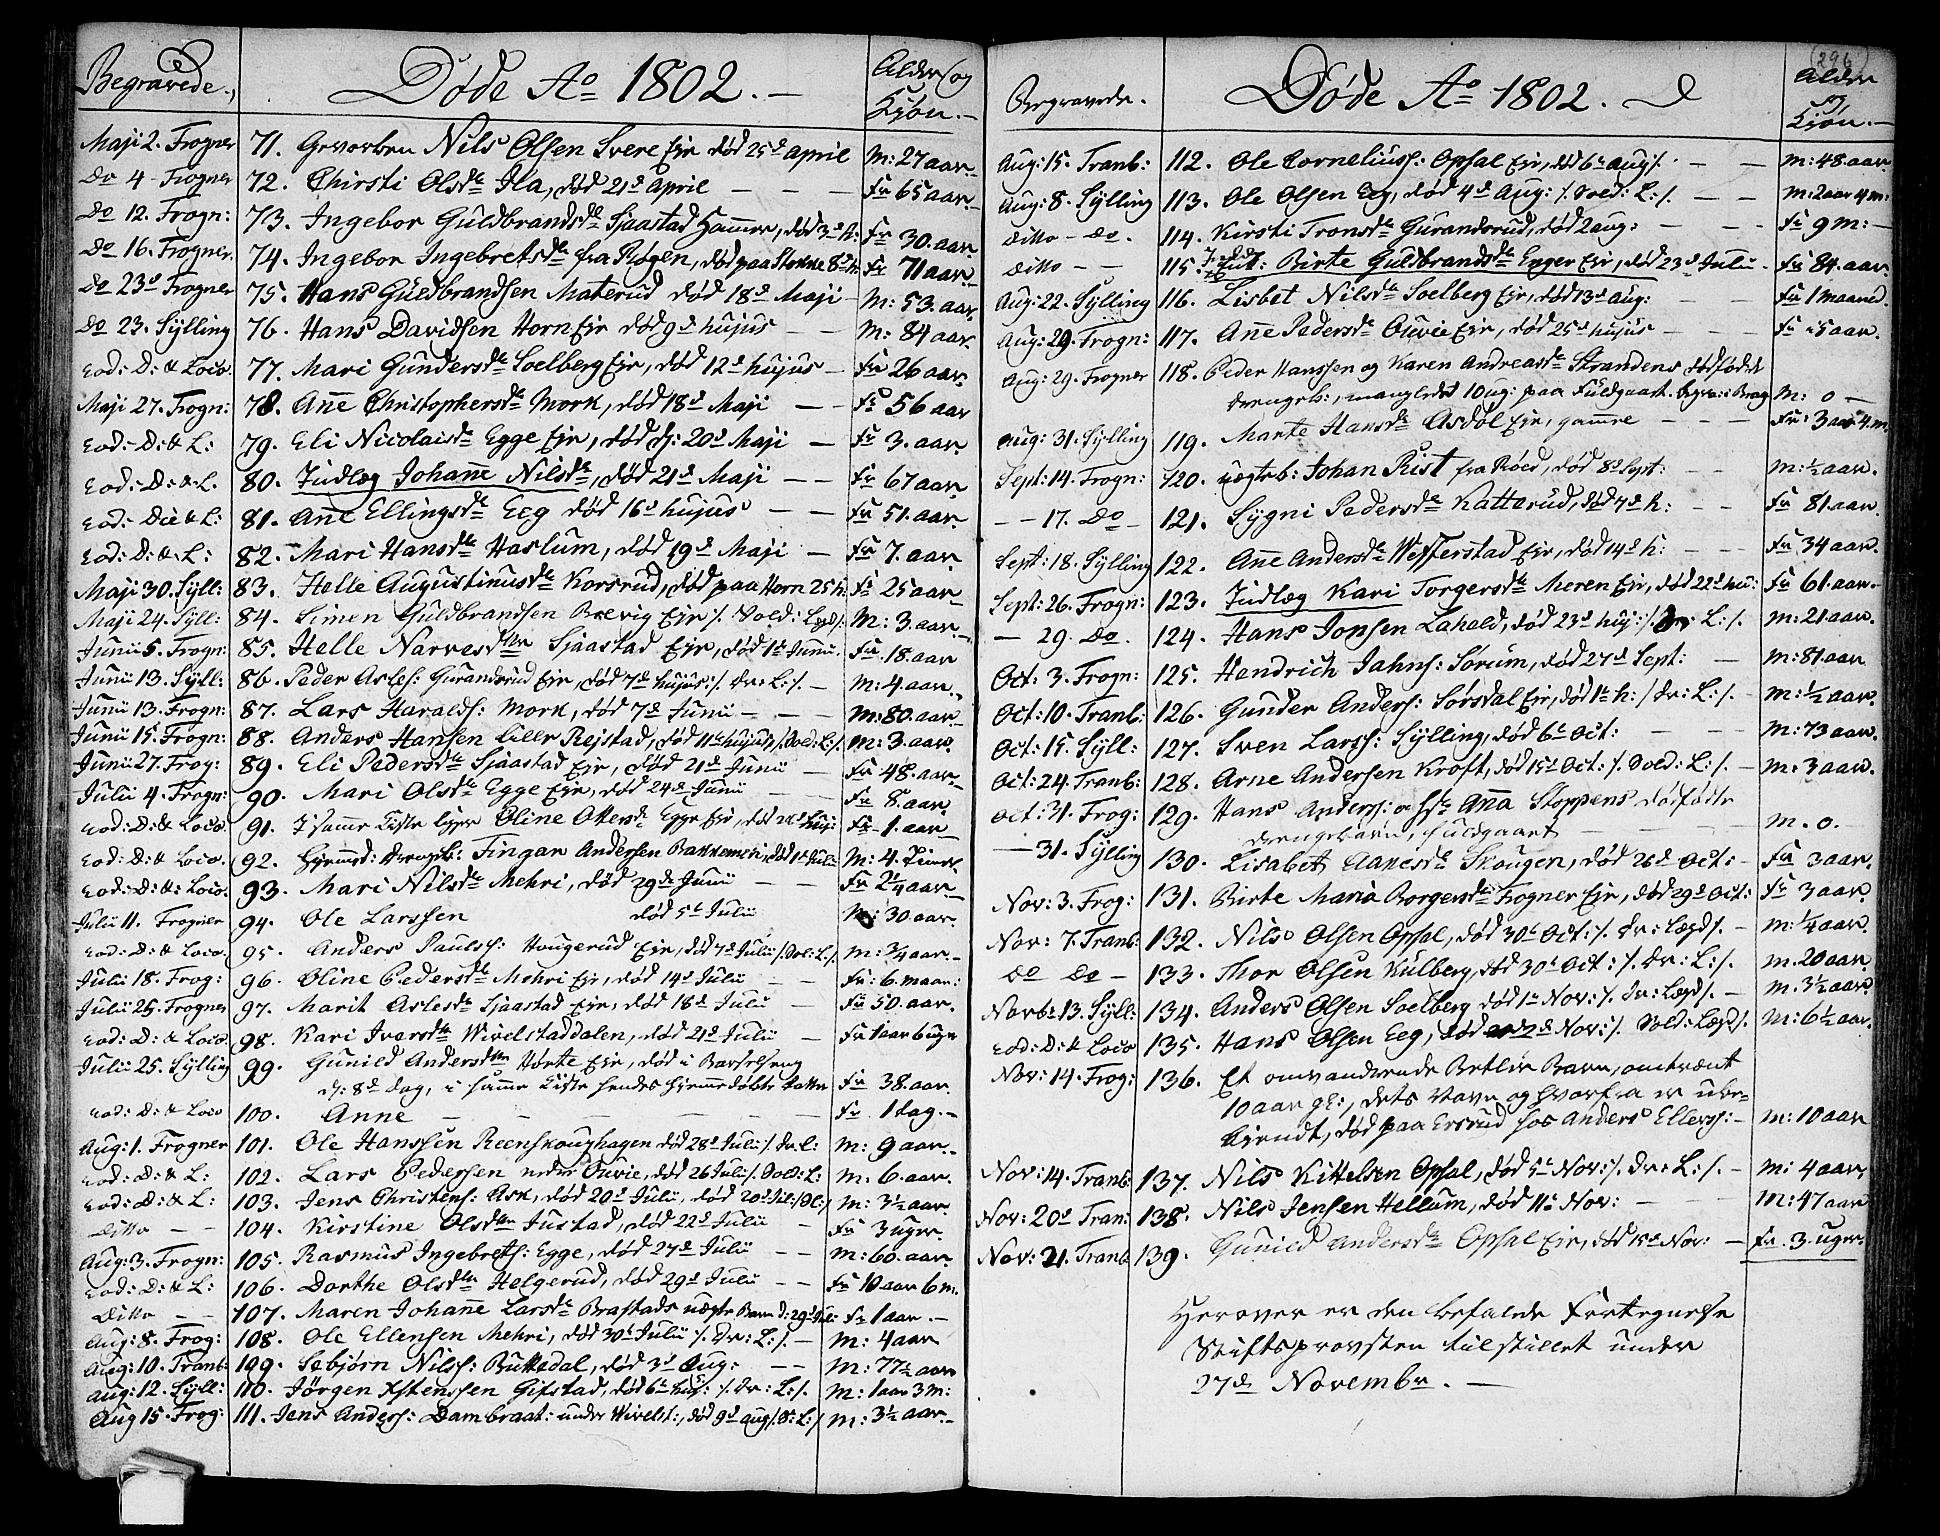 Begravede.
Døde Ao 1802.
Alder og
Kiøn.
Maji 2. Frogner 71. Gevorben Nils Olsen Svere Eje død 25d april M: 27 aar.
Do 4 Frogner 72. Chirsti Olsdr Ila, død 21d April Fr 65 aar.
Do 12. Frogn: 73. Ingebor Guldbrandsdr Sjaastad Hammer, død 3d h: Fr 30. aar.
Do 16. Frogner. 74. Ingebor Ingebretsdr fra Røgen, død paa Stokke 8d h. Fr 71 aar.
Do 23d Frogner 75. Hans Guldbrandsen Materud død 18d Maji M: 53. aar.
Do 23. Sylling 76. Hans Davidsen Horn Eje død 9d hujus M: 84 aar.
eod: D: & Loco. 77. Mari Gundersdr Soelberg Eje, død 12d hujus Fr 26 aar.
Maji 27. Frogn: 78. Anne Christophersdr Mork, død 18d Maji Fr 56 aar
eod: D: & L: 79. Eli Nicolaisdr Egge Eje, død d: 20d Maji Fr 3. aar.
eod: D: & L. 80. Indlæg Johanne Nilsdr, død 21d Maji Fr 67 aar.
eod: Die & L: 81. Anne Ellingsdr Eeg død 16d hujus Fr 51. aar.
eod: D: & L: 82. Mari Hansdr Haslum, død 19d Maji Fr 7. aar.
Maji 30. Syll: 83. Helle Augustinusdr Korsrud, død paa Horn 25 h. Fr 25 aar
Maji 24. Syll: 84. Simen Guldbrandsen Brevig Eje /. Vold: Legd/. M: 3. aar.
Junii 5. Frogn: 85. Helle Narvesdtr Sjaastad Eje, død 1d Junii. Fr. 18. aar
Junii 13. Syll: 86. Peder Asles: Gurandsrud Eje, død 7d hujus: /. Dr: L: /. M: 4. aar.
Junii 13. Frogn: 87. Lars Haralds: Mork, død 7d Junii M: 80. aar.
Junii 15. Frogn: 88. Anders Hansen Lille Rejstad, død 11t hujus /. Vold: L: /. M: 3. aar.
Junii 27. Frog: 89. Eli Pedersdr Sjaastad Eje, død 21d Junii Fr 48. aar
Julii 4. Frogn: 90. Mari Olsdr Egge Eje, død 24d Junii Fr 8. aar.
eod: D: & Loco 91. I samme Kiste ligger Oline Ottersdr Egge Eje, død 24d huj: Fr 1. aar
eod: D: & Loco. 92. Hjemd: drengeb: Fingar Andersen Bakkemeri, død 1t Julii M: 4. Timer
eod: D: & Loco. 93. Mari Nilsdr Mehri, død 29d Junii Fr 2¼ aar.
Julii 11. Frogner 94. Ole Larssen død 5t Julii M: 30 aar.
eod: D: & Loco. 95. Anders Pauls: Haugerud Eje, død 7d Julii /. Vol: L: /. M: ¾ aar.
Julii 18. Frog: 96. Oline Pedersdr Mehri Eje, død 14d Julii Fr: 6. maan:
Julii 25. Frogner 97. Marit Aslesdr Sjaastad Eje, død 18d Julii Fr 50. aar.
eod: D: & Loco. 98. Kari Iversdr Wivelstaddalen, død 21d Julii Fr 1 aar 6 ugr
Julii 25. Sylling 99. Gunild Andersdtr Hørte Eje, død i Barselseng
d: 8d dag, i samme Kiste hendes hjemmedøbte datter Fr 38. aar.
eod: D: & Loco 100. Anne Fr 1 dag.
Aug: 1. Frogner 101. Ole Hanssen Reenskoughagen død 28d Julii /. Dr: L: M: 9 aar.
eod: D: & L: 102. Lars Pederssen nedre Ouvie, død 26 Jul: /. Vold: L: M: 6. aar.
eod: D: & L: 103. Jens Christens: Ask, død 20d Julii, død 20d Jul: /. Ol: /. M: 3½ aar.
Ditto 104. Kirstine Olsdtr Justad, død 22d Julii Fr 3 uger.
Aug: 3. Frogn: 105. Rasmus Ingebrets: Egge, død 27d Julii M: 60. aar.
eod: D: & L: 106. Dorthe Olsdtr Helgerud, død 29d Julii Fr 10 aar 6 m.
Ditto 107. Maren Johanne Larsdr Brastads uægte Barn d: 29d Julii Fr 1 aar.
Aug: 8. Frog: 108. Ole Ellensen Mehri, død 30t Julii /. Dr: L: /. M: 4 aar
Aug: 10. Tranb: 109. Sebjörn Nilss: Buttedal, død 3d Aug: M: 77½ aar
Aug: 12. Syll: 110. Jörgen Østenssen Gifstad, død 6t huj: /. Dr: L: /. M: 1 aar 3 m:
Aug 15. Frog: 111. Jens Anders: Dambraat: under Wivelst:, død 9d aug /. 8: L: /. M: 3½ aar.
(296)
Begravede.
Døde Ao 1802.
Alder
og
Kiøn.
Aug: 15. Tranb: 112. Ole Corneliuss: Opsal Eje, død 6t aug /. M: 48. aar.
Aug: 8. Sylling 113. Ole Olsen Eeg, død 4d Aug: /. Vold: L: /. M: 2 aar 4 m:
Ditto Do. 114. Kirsti Tronsdr Gurandsrud, død 2 aug: Fr 9 M:
Ditto 115. Ent: Birte Guldbrandsdr Enger Eje, død 23d Julii Fr 84. aar.
Aug: 22. Sylling 116. Lisbet Nilsdr Soelberg Eje, død 13d aug: Fr 1 maaned.
Aug: 29. Frogn: 117. Anne Pedersdr Ouvie Eje, død 25d hujus Fr 5 aar.
Aug: 29. Frogner 118. Peder Hanssen og Karen Andreasdr Strandens dødfødde
drengeb:, manglede 10 ug: paa Fuldgaaet. Begra: i Brag M: 0
aug: 31. Sylling 119. Marte Hansdr Asdøl Eje, gamme Fr: 3 aar 4. m.
Sept: 14. Frogn: 120. uægteb: Johan Rist fra Røed, død 8d Sept: M: ½ aar.
17. Do 121. Sygni Pedersdr Katterud, død 7d h: Fr 81. aar.
Sept: 18. Sylling 122. Anne Andersdr Wefferstad Eje, død 14d h: Fr 34 aar.
Sept: 26. Frogn: 123. Indlæg Kari Torgersdr Meren Eje, død 22d hu: Fr 61. aar.
29. Do. 124. Hans Jonsen Lahald, død 23d huj: /. Dr: L: /. M: 21. aar
Oct: 3. Frogn: 125. Hendrich Jahns: Sørum, død 27d Sept: M: 81. aar
Oct: 10. Tranb: 126. Gunder Anders: Sørsdal Eje, død 1t h: /. Dr: L: /. M: ½ aar.
Oct: 15. Syll: 127. Sven Larss: Sylling, død 6t Oct: M: 73 aar.
Oct: 24. Tranb: 128. Arne Andersen Kroft, død 15d Oct: /. Vold: L: /. M: 3 aar.
Oct: 31. Frog: 129. Hans Anders: og Hst Anna Stoppens dødfødte
drengebarn, fuldgaaet M. 0.
31. Sylling 130. Lisabet Aanesdr Skougen, død 26d Oct: Fr 3 aar.
Nov: 3. Frog: 131. Birte Maria Borgersdr Frogner Eje, død 29d Oct: Fr 3 aar.
Nov: 7. Tranb: 132. Nils Olsen Opsal, død 30t Oct: /. Dr: Legd /. M: ¼ aar.
Do Do 133. Thor Olsen Kulberg, død 30t Oct: /. Dr: L: /. M. 20 aar
Novbr 13. Syll: 134. Anders Olsen Soelberg død 1t Nov: /. Dr: Legd /. M. 3½ aar.
eod: D: & Loco 135. Hans Olsen Eeg, død 7d Nov: /. Vold: Legd /. M: 6½ aar.
Nov: 14. Frog: 136. Et omvandrende Betler Barn, omtrent
10 aar gl:, dets Navn og hvorfra er ube-
kjendt, død paa Ersrud hos Anders Ellers: M: 10 aar
Nov: 14. Tranb: 137. Nils Kittelsen Opsal, død 5t Nov: /. Dr: L: /. M: 4 aar.
Nov: 20d Tran: 138. Nils Jensen Hellum, død 11t Nov: M: 47 aar
Nov: 21. Tranb 139. Gunild Andersdr Opsal Eje, død 15d Nov: Fr. 3. uger.
Herover er den befalede Fortegnelse
Stiftsprovsten tilstillet under
27de Novembr.